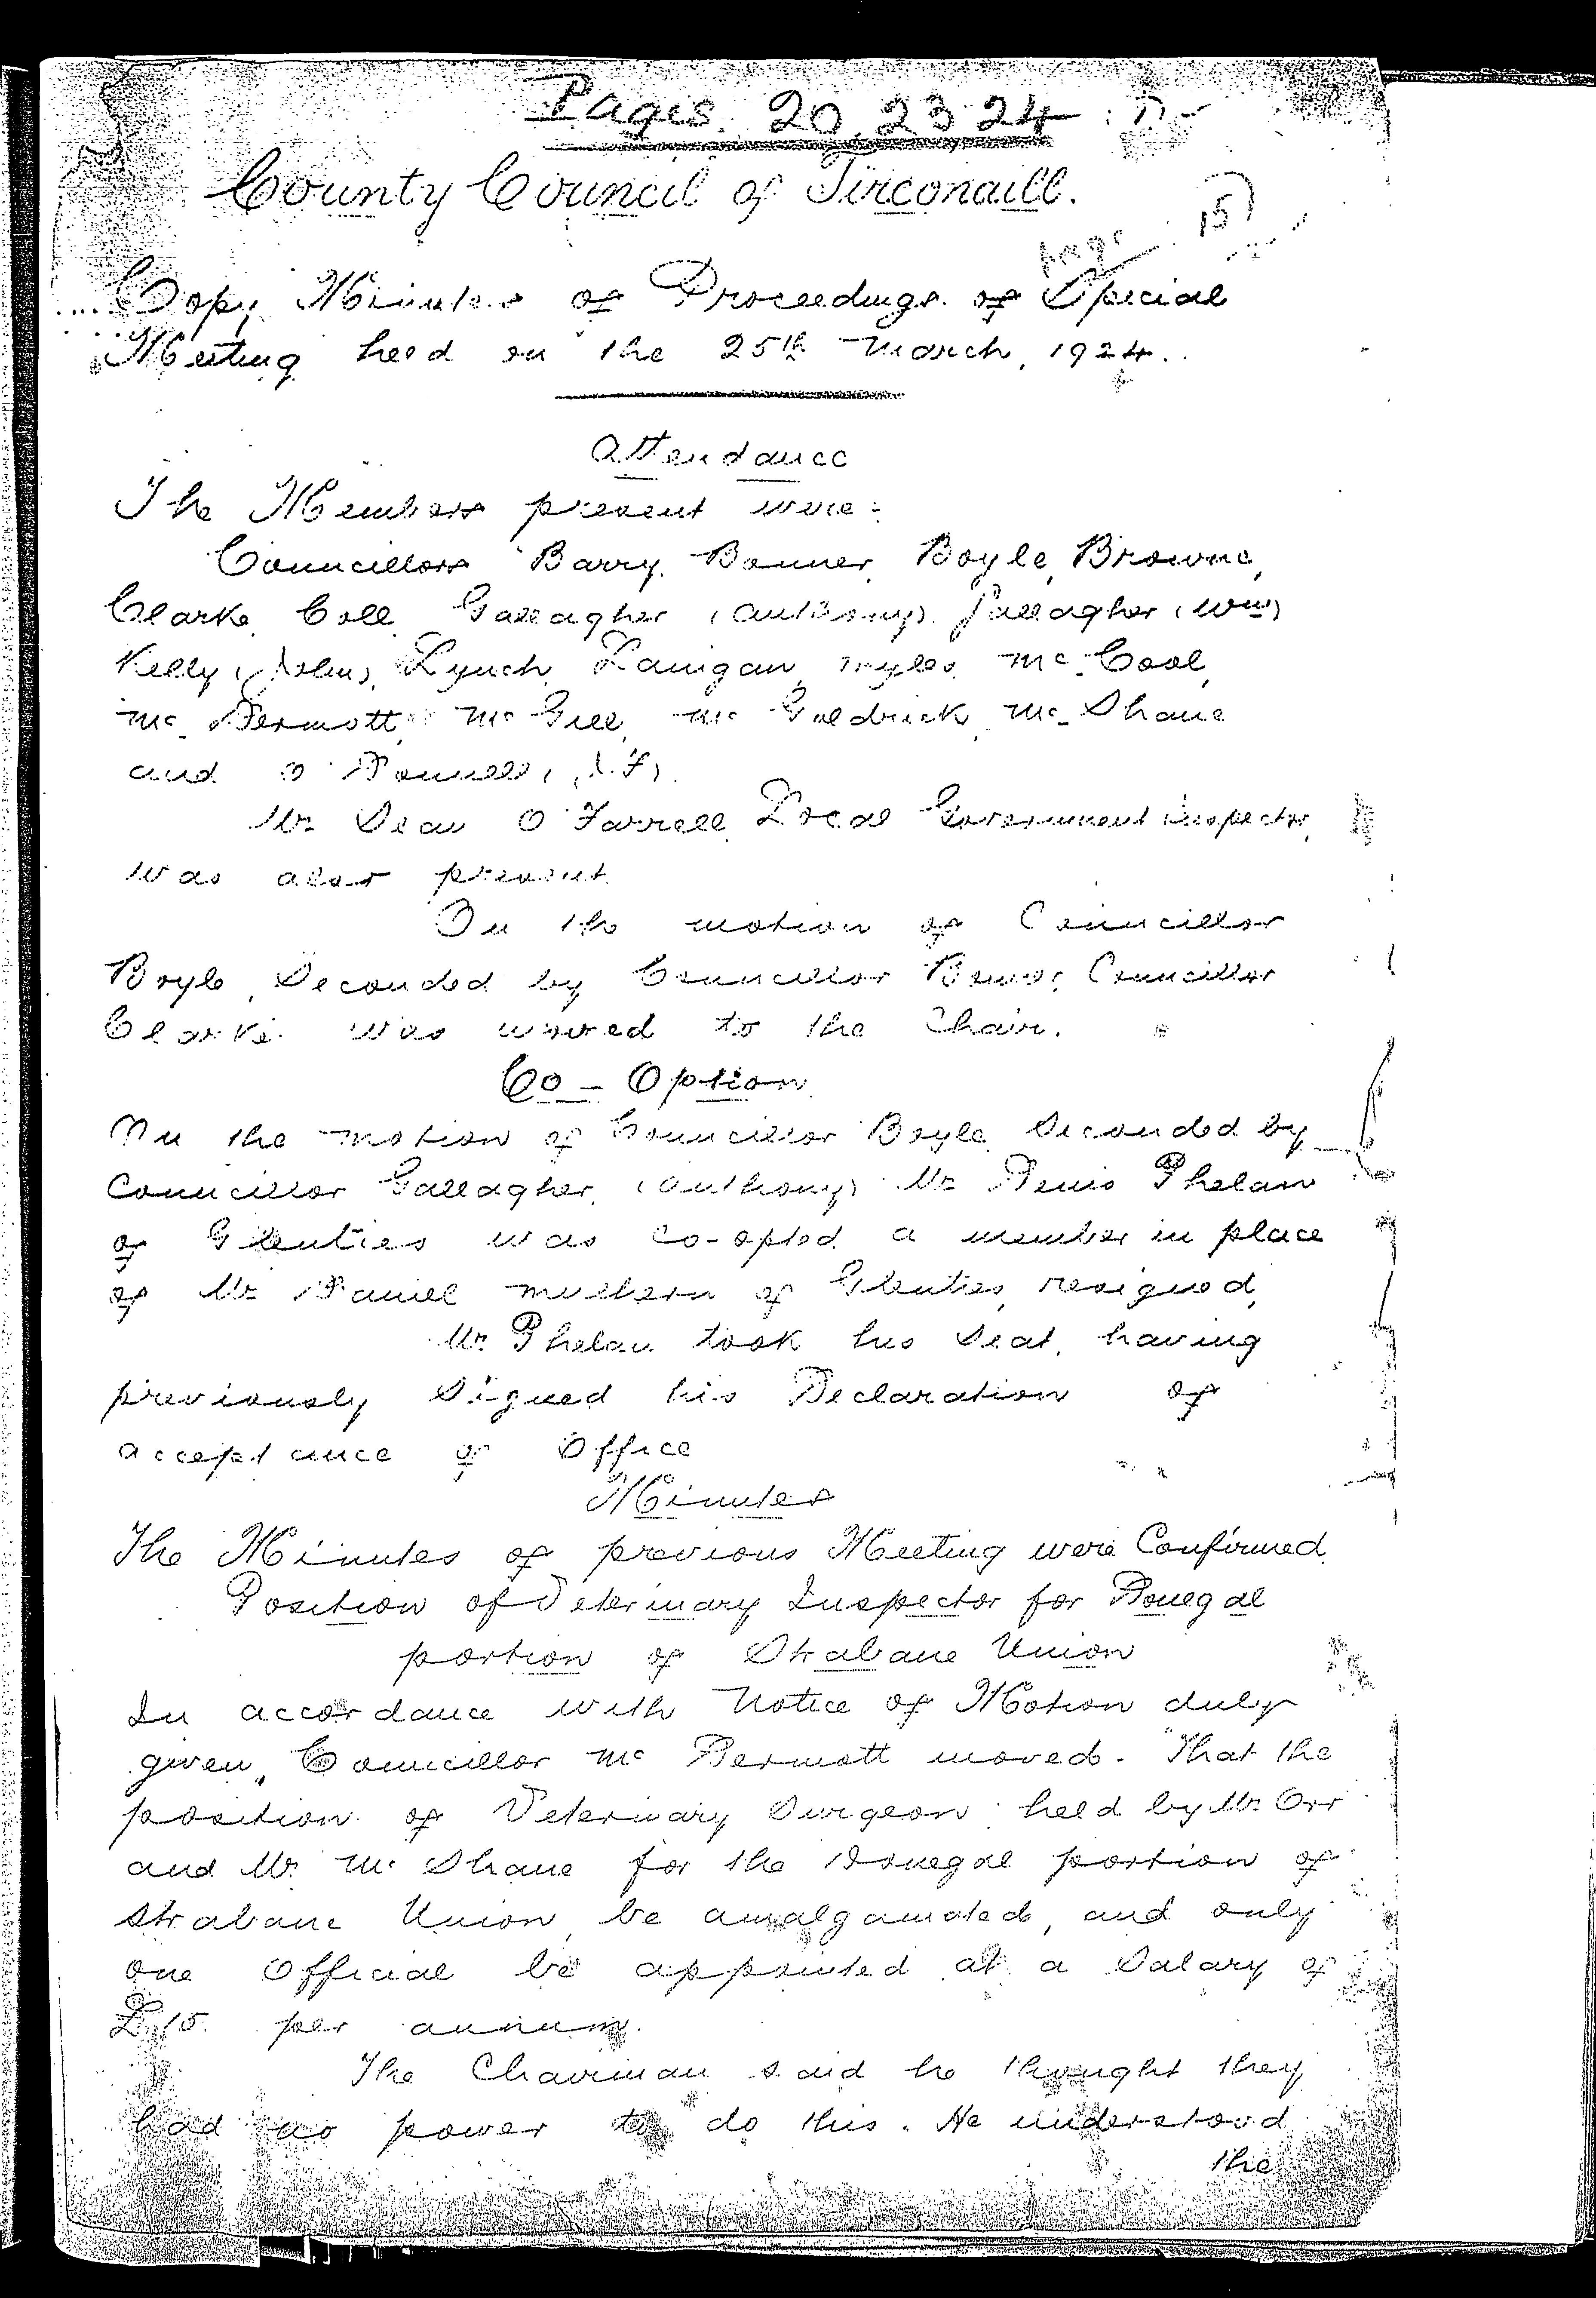 Pages. 20, 23 24
County Council of Tirconaill.
page 15
Copy Minutes of Proceedings of Special
Meeting held on the 25th March, 1924.
Attendance
The Members present were:
Councillors Barry, Bonner, Boyle, Browne,
Clarke, Coll, Gallagher (Anthony), Gallagher (Wm)
Kelly (John), Lynch, Langan, Myles, Mc Cool,
Mc Dermott, Mc Gill, Mc Goldrick, Mc Shane
and O'Donnell, (J.F).
Mr Sean O'Farrell, Local Government Inspector,
was also present.
On the motion of Councillor
Boyle, Seconded by Councillor Bonner, Councillor
Clarke was moved to the Chair.
Co-Option
On the motion of Councillor Boyle, Seconded by
Councillor Gallagher, (Anthony) Mr Denis Phelan
of Glenties was co-opted a member in place
of Mr Daniel Mulhern of Glenties, resigned,
Mr Phelan took his Seat, having
previously Signed his Declaration of
acceptance of Office
Minutes
The Minutes of previous Meeting were Confirmed.
Position of Veterinary Inspector for Donegal
portion of Strabane Union
In accordance with Notice of Motion duly
given, Councillor Mc Dermott moved - "That the
position of Veterinary Surgeon held by Mr Orr
and Mr Mc Shane for the Donegal portion of
Strabane Union, be amalgamated, and only
one Official be appointed at a Salary of
£15. per annum.
The Chairman said he thought they
had no power to do this. He understood
the